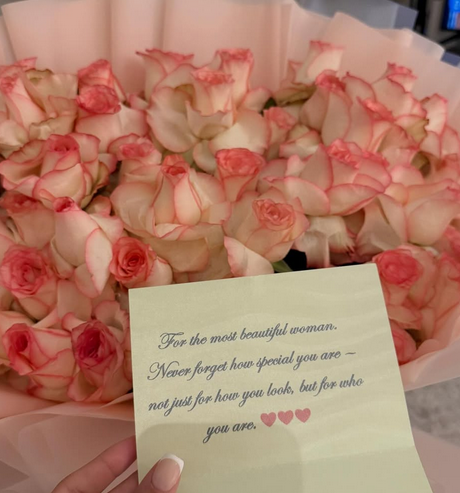 For the most beautiful woman.
Never forget how special you are ~
not just for how you look, but for who
you are. ❤❤❤